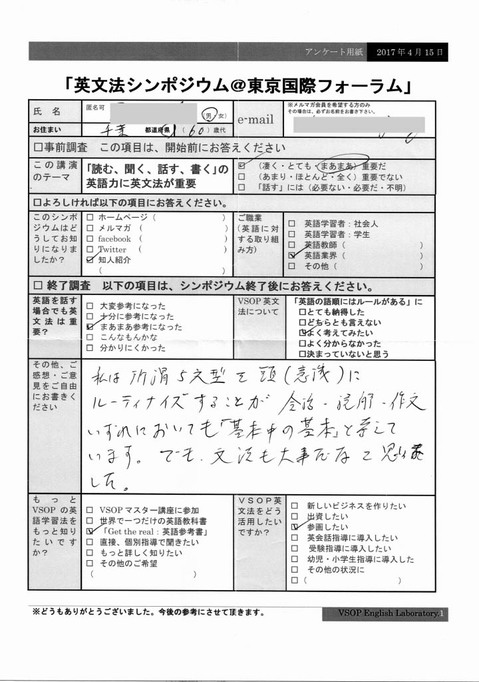 アンケート用紙 2017年4月15日
「英文法シンポジウム@東京国際フォーラム」
氏 名 匿名可 (男・女) e-mail ※メルマガ会員を希望する方のみ
その場合は、必ずお名前をお書き下さい。
お住まい 千葉 都道府県 (60)歳代
□事前調査 この項目は、開始前にお答えください
この講演のテーマ 「読む、聞く、話す、書く」の英語力に英文法が重要
(凄く・とても・まあまあ)重要だ
□ (あまり・ほとんど・全く)重要でない
□ 「話す」には(必要ない・必要だ・不明)
□よろしければ以下の項目にお答えください。
このシンポジウムはどうしてお知りになりましたか?
□ ホームページ( )
□ メルマガ ( )
□ facebook ( )
□ Twitter ( )
☑ 知人紹介
( )
ご職業
(英語に対する取り組み方)
□ 英語学習者:社会人
□ 英語学習者:学生
□ 英語教師( )
☑ 英語業界( )
□ その他( )
□ 終了調査 以下の項目は、シンポジウム終了後にお答えください。
英語を話す場合でも英文法は重要?
□ 大変参考になった
□ 十分に参考になった
☑ まあまあ参考になった
□ こんなもんかな
□ 分かりにくかった
VSOP英文法について
「英語の語順にはルールがある」に
□とても納得した
□どちらとも言えない
☑よく考えてみたい
□よく分からなかった
□決まっていないと思う
その他、ご感想・ご意見をご自由にお書きください
私は所謂5文型を頭(意識)に
ルーティナイズすることが会話・読解・作文
いずれにおいても「基本中の基本」と考えて
います。でも、文法も大事だなと思いま
した。
もっとVSOPの英語学習法をもっと知りたいですか?
□ VSOPマスター講座に参加
□ 世界で一つだけの英語教科書
☑ 「Get the real:英語参考書」
□ 直接、個別指導で聞きたい
□ もっと詳しく知りたい
□ その他のご希望
( )
VSOP英文法をどう活用したいですか?
□ 新しいビジネスを作りたい
□ 出資したい
☑ 参画したい
□ 英会話指導に導入したい
□ 受験指導に導入したい
□ 幼児・小学生指導に導入した
□ その他の状況に
□ ( )
※どうもありがとうございました。今後の参考にさせて頂きます。
VSOP English Laboratory 1